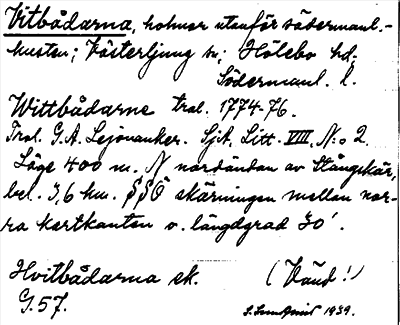 Vitbådarna, holmar utanför södermanl.-
kusten; Västerljung sn; Hölebo hd;
Södermanl. l.
Wittbådarne trol. 1774-76.
Trol. G.A. Lejonanker. SjA, Litt. VIII, N:o 2.
Läge 400 m. N nordändan av Stångskär,
bel. 3,6 km. SSÖ skärningen mellan nor-
ra kartkanten o. längdgrad 30'.
Hvitbådarna ek. (Vänd!)
G.57. 1939.